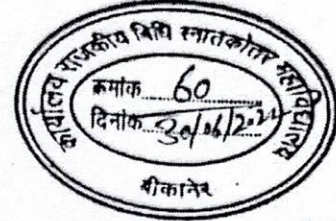 कार्यालय राजकीय विधि स्नातकोत्तर महाविद्यालय
क्रमांक 60
दिनांक 30/06/2022
बीकानेर